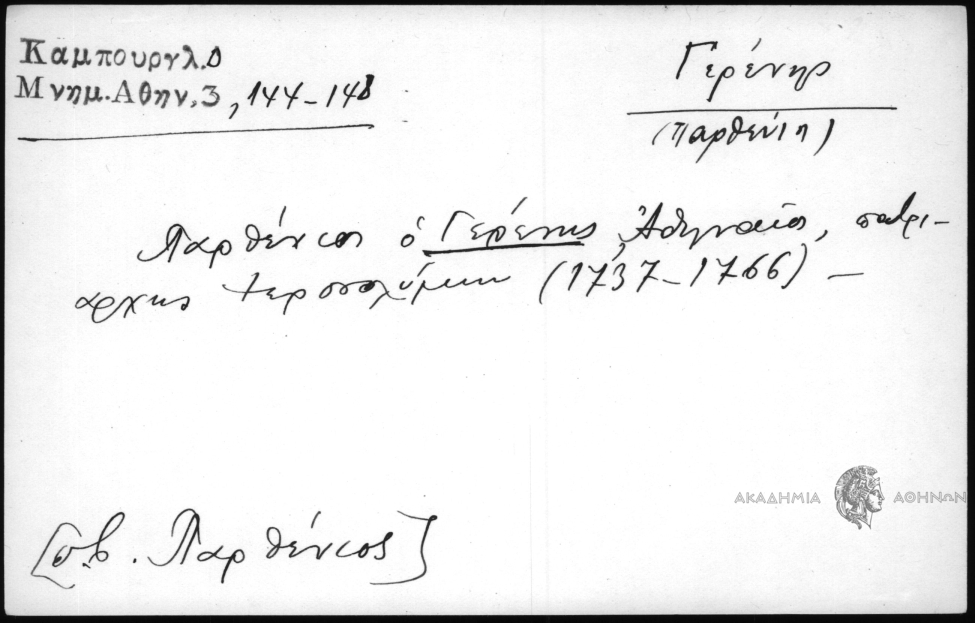 Καμπουρογλ.Δ
Μνημ.Αθην.3, 144-148
Γερένης
(Παρθένιος)
Παρθένιος ὁ Γερένης, Ἀθηναῖος, πατρι-
άρχης Ἱεροσολύμων (1737-1766) —
ΑΚΑΔΗΜΙΑ ΑΘΗΝΩΝ
[σ.β. Παρθένιος]